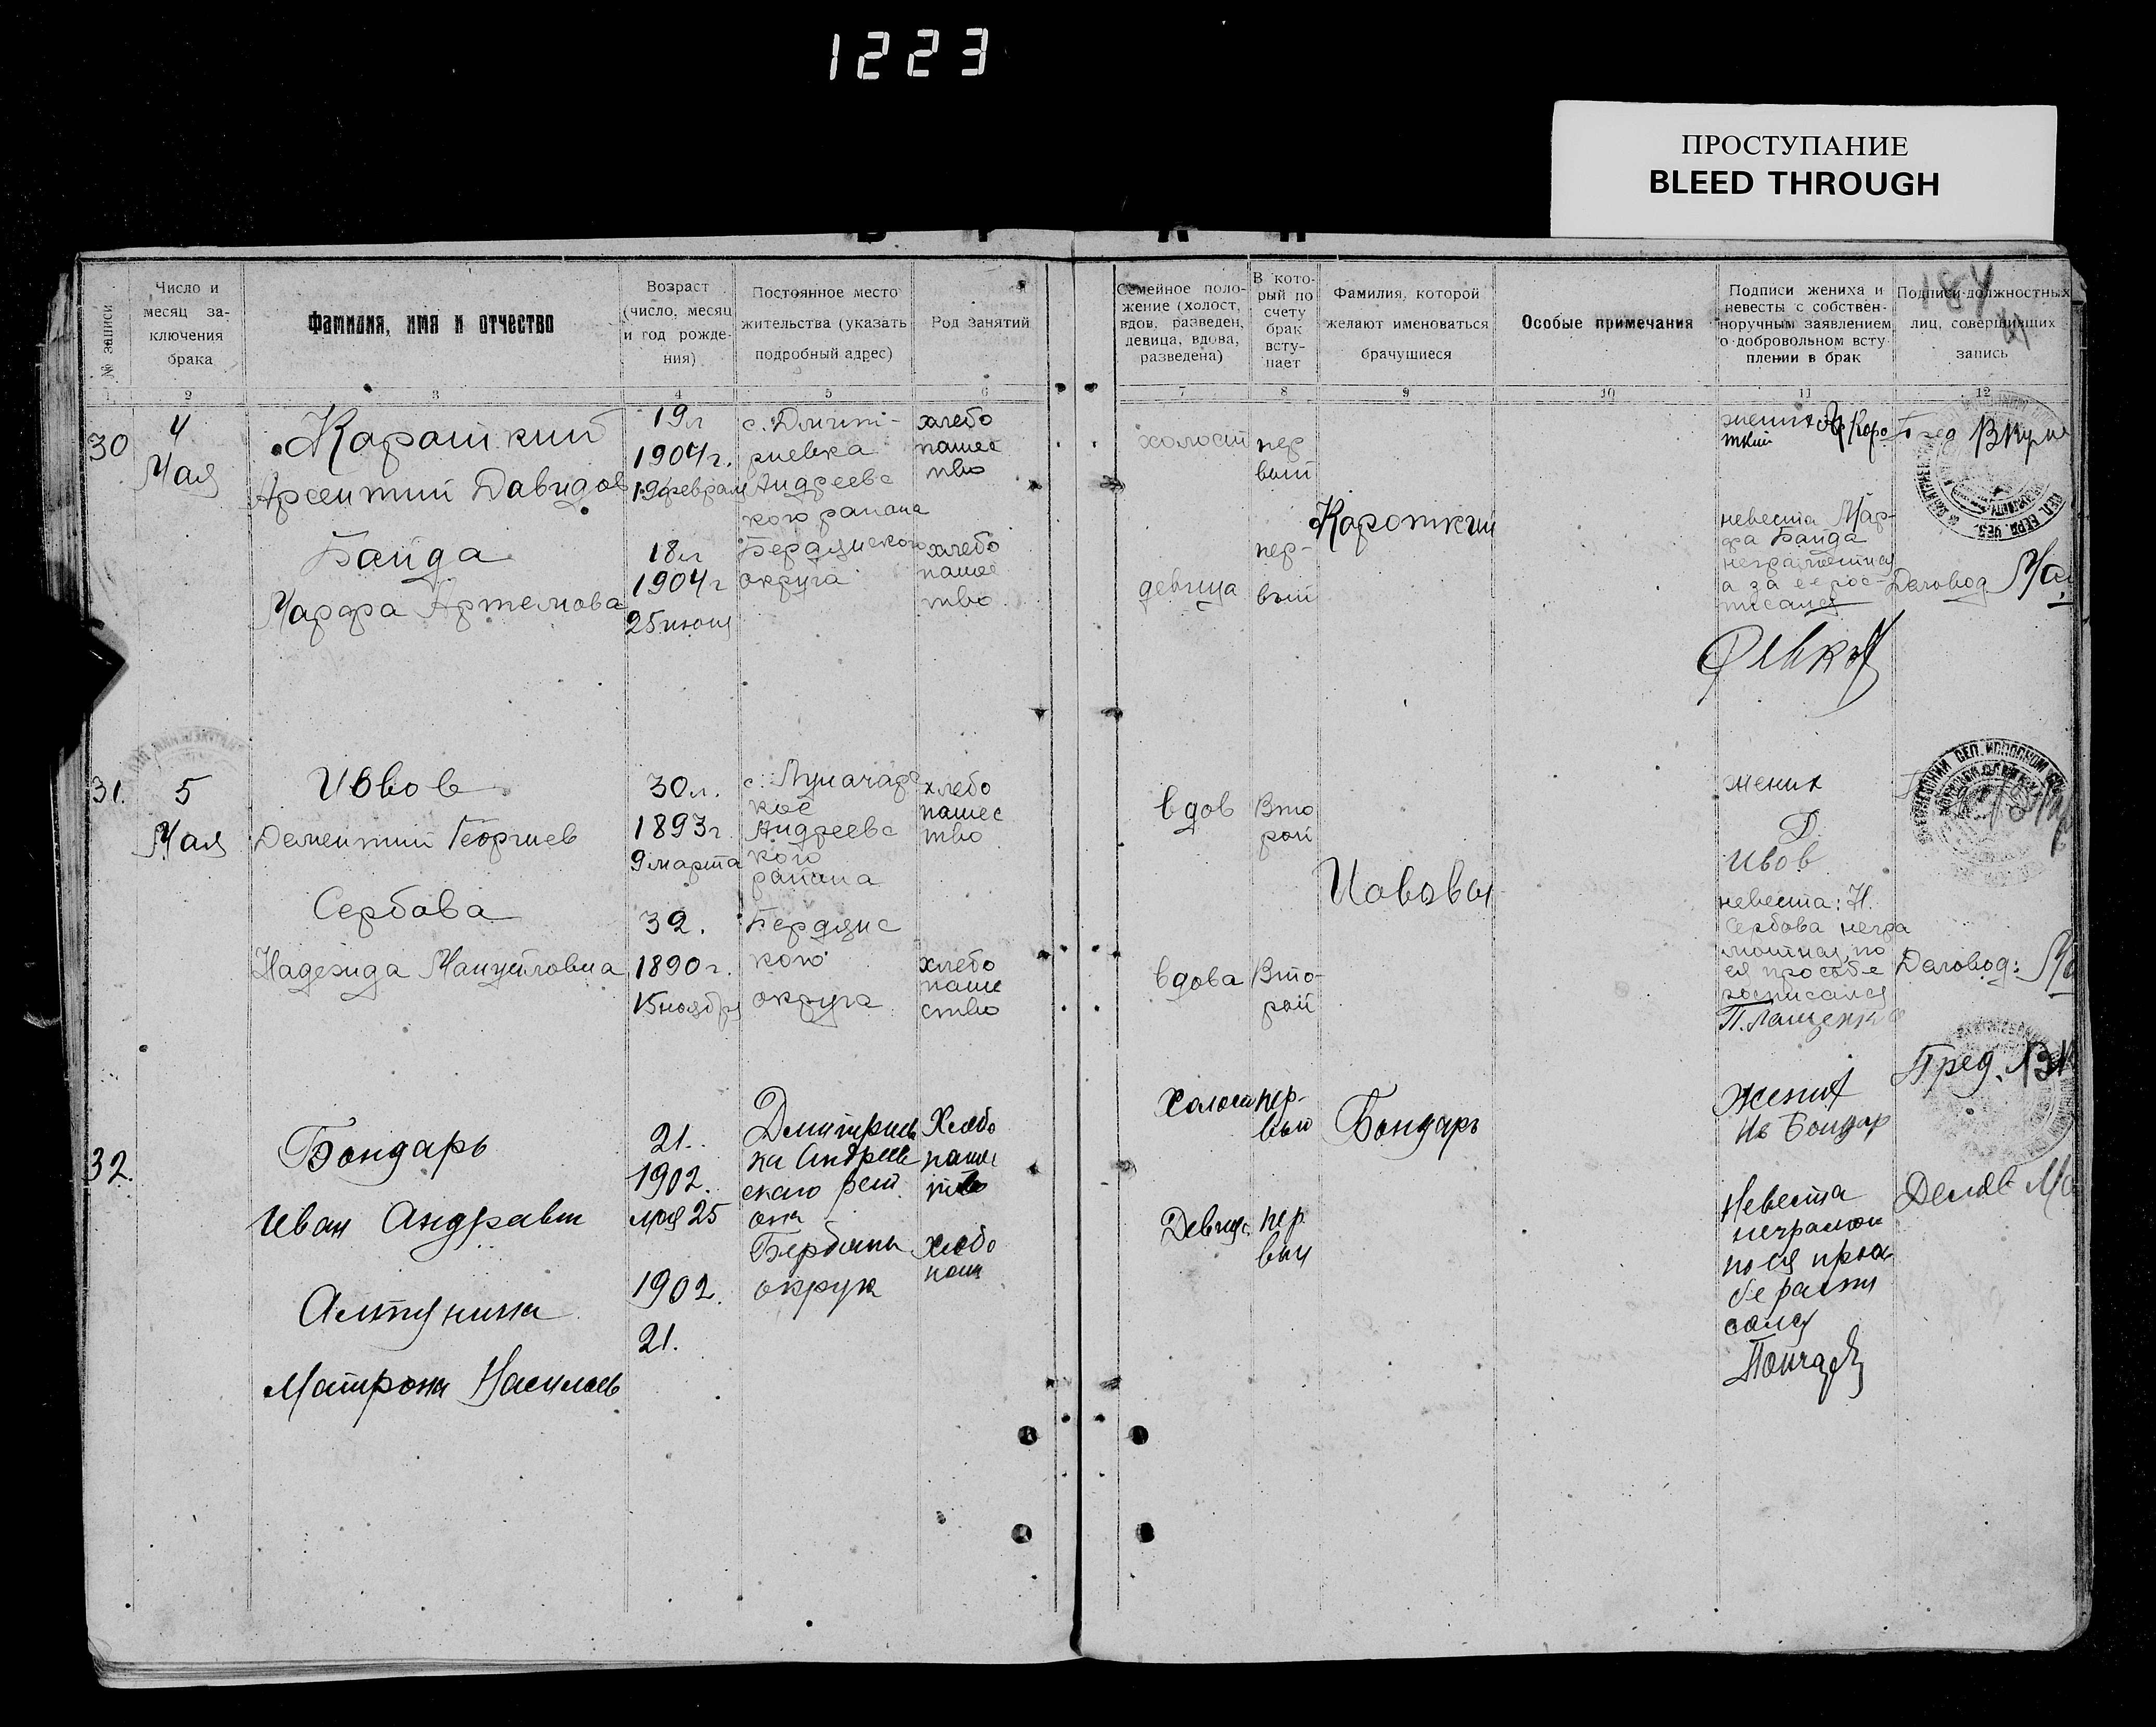 1223
ПРОСТУПАНИЕ
BLEED THROUGH
№ записи
Число и
месяц за-
ключения
брака
Фамилия, имя и отчество
Возраст
(число, месяц
и год рожде-
ния)
Постоянное место
жительства (указать
подробный адрес)
Род занятий
Семейное поло-
жение (холост,
вдов, разведен,
девица, вдова,
разведена)
В кото-
рый по
счету
брак
всту-
пает
Фамилия, которой
желают именоваться
брачущиеся
Особые примечания
Подписи жениха и
невесты с собствен-
норучным заявлением
о добровольном всту
плении в брак
Подписи должностных
лиц, совершивших
запись
187
2
3
4
5
6
7
8
9
10
11
12
30
4
Мая
Кароткий
Арсентий Давидов
19л
1904г.
19февраля
с. Дмит-
риевка
Андреевс
кого раиона
хлебо
пашес
тво
холост
пер
вый
Кароткий
жених Ар Коро
ткий
Пред
Байда
Марфа Артемова
18л
1904г
25июня
Бердянского
округа
хлебо
пашес
тво
девица
пер-
вый
невеста Мар-
фа Байда
неграмотная
а за ее рос-
писался
Деловод
31.
5
Мая
Ивов
Дементий Георгиев
30л.
1893г.
9марта
с. Луначарс
кое
Андреевс
кого
раиона
хлебо
пашес
тво
вдов
Вто
рой
жених
Д.
Ивов
Сербова
Надежда Мануиловна
32.
1890г.
15ноября
Бердянс
кого
округа
хлебо
паше
ство
вдова
Вто-
рой
невеста: Н.
Сербова негра
мотная, по
ея прозбе
росписался
П. Лащенко
Деловод:
32.
Бондарь
Иван Андреев
21.
1902.
мая 25
Дмитриев
ка Андреев
скаго рай
она
Хлебо
пашес
тво
Холост
пер-
вый
Бондарь
Жених
Ив Бондар
Пред.
Матрона Васильев
1902.
21.
Бердянск
округа
Хлебо
паш
Девица
пер
вый
Невеста
неграмот
по ея прозь
бе распи
сался
Делов